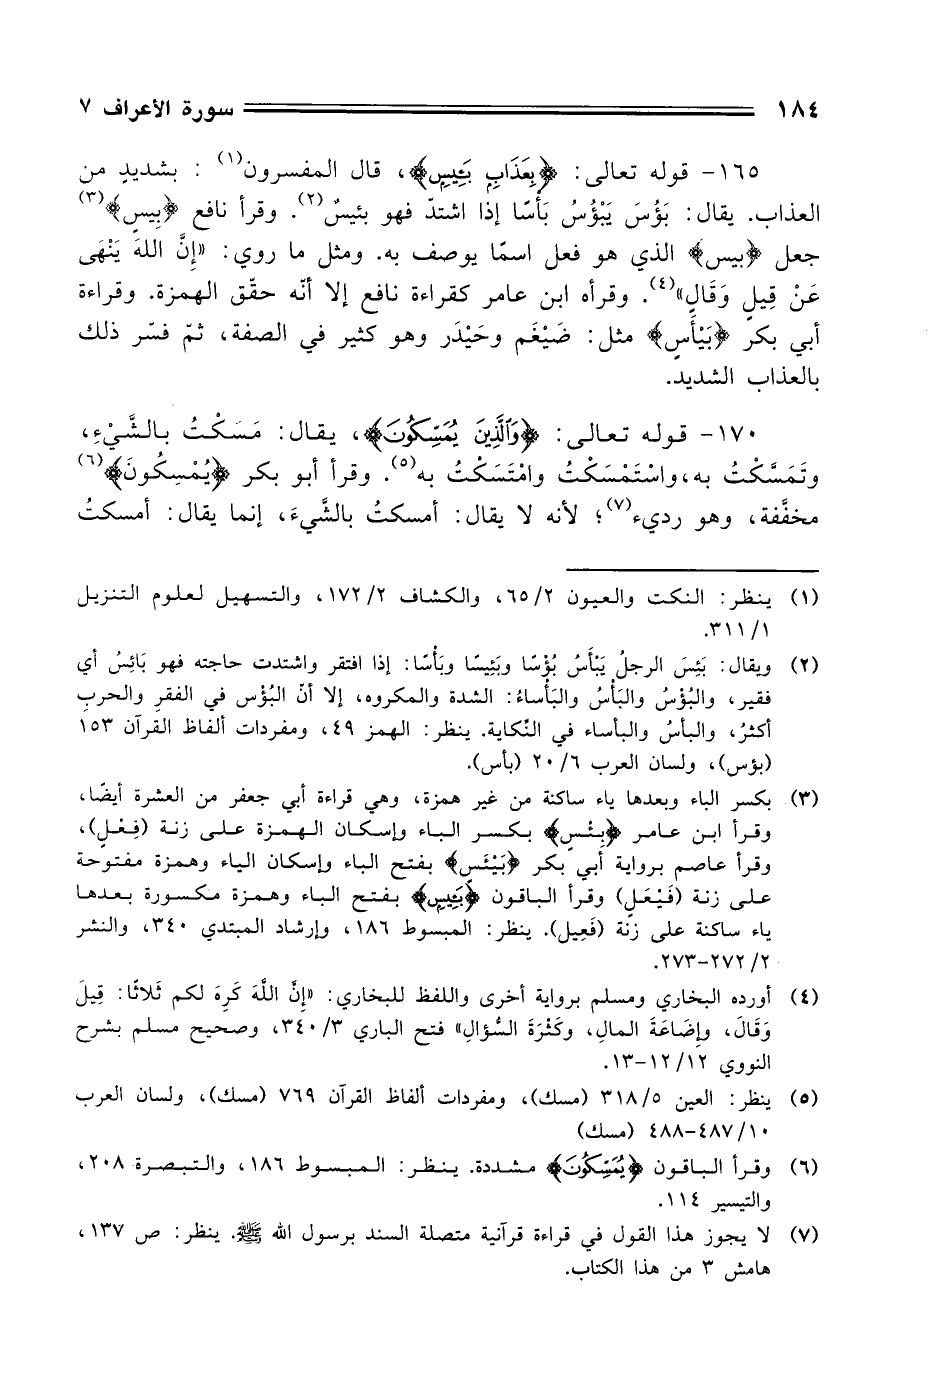 ١٨٤ سورة الأعراف ٧
١٦٥- قوله تعالى: ﴿بِعَذَابٍ بَئِيسٍ﴾، قال المفسرون(١) : بشديدٍ من
العذاب. يقال: بَؤُسَ يَبْؤُسُ بَأْسًا إذا اشتدّ فهو بئيسٌ(٢). وقرأ نافع ﴿بِيسٍ﴾(٣)
جعل ﴿بيس﴾ الذي هو فعل اسمًا يوصف به. ومثل ما روي: «إِنَّ اللهَ يَنْهَى
عَنْ قِيلٍ وَقَالٍ»(٤). وقرأه ابن عامر كقراءة نافع إلا أنّه حقّق الهمزة. وقراءة
أبي بكر ﴿بَيْأَسٍ﴾ مثل: ضَيْغَم وحَيْدَر وهو كثير في الصفة، ثمّ فسّر ذلك
بالعذاب الشديد.
١٧٠- قوله تعالى: ﴿وَٱلَّذِينَ يُمَسِّكُونَ﴾، يقال: مَسَكْتُ بالشَّيْءِ،
وتَمَسَّكْتُ به، واسْتَمْسَكْتُ وامْتَسَكْتُ به(٥). وقرأ أبو بكر ﴿يُمْسِكُونَ﴾(٦)
مخفَّفة، وهو رديء(٧)؛ لأنه لا يقال: أمسكتُ بالشَّيءَ، إنما يقال: أمسكتُ
(١) ينظر: النكت والعيون ٢/ ٦٥، والكشاف ٢/ ١٧٢، والتسهيل لعلوم التنزيل
١/ ٣١١.
(٢) ويقال: بَئِسَ الرجلُ يَبْأَسُ بُؤْسًا وبَئِيسًا وبَأْسًا: إذا افتقر واشتدت حاجته فهو بَائِسُ أي
فقير، والبُؤْسُ والبَأْسُ والبَأْساءُ: الشدة والمكروه، إلا أنّ البُؤْس في الفقرِ والحربِ
أكثرُ، والبأسُ والبأساء في النّكاية. ينظر: الهمز ٤٩، ومفردات ألفاظ القرآن ١٥٣
(بؤس)، ولسان العرب ٦/ ٢٠ (بأس).
(٣) بكسر الباء وبعدها ياء ساكنة من غير همزة، وهي قراءة أبي جعفر من العشرة أيضًا،
وقرأ ابن عامر ﴿بِئْسٍ﴾ بكسر الباء وإسكان الهمزة على زنة (فِعْلٍ)،
وقرأ عاصم برواية أبي بكر ﴿بَيْئَسٍ﴾ بفتح الباء وإسكان الياء وهمزة مفتوحة
على زنة (فَيْعَلٍ) وقرأ الباقون ﴿بَئِيسٍ﴾ بفتح الباء وهمزة مكسورة بعدها
ياء ساكنة على زنة (فَعِيل). ينظر: المبسوط ١٨٦، وإرشاد المبتدي ٣٤٠، والنشر
٢/ ٢٧٢-٢٧٣.
(٤) أورده البخاري ومسلم برواية أخرى واللفظ للبخاري: «إِنَّ اللَّهَ كَرِهَ لكم ثَلاثًا: قِيلَ
وَقَالَ، وإِضَاعَةَ المالِ، وكَثْرَةَ السُّؤالِ» فتح الباري ٣/ ٣٤٠، وصحيح مسلم بشرح
النووي ١٢/ ١٢-١٣.
(٥) ينظر: العين ٥/ ٣١٨ (مسك)، ومفردات ألفاظ القرآن ٧٦٩ (مسك)، ولسان العرب
١٠/ ٤٨٧-٤٨٨ (مسك)
(٦) وقرأ الباقون ﴿يُمَسِّكُونَ﴾ مشددة. ينظر: المبسوط ١٨٦، والتبصرة ٢٠٨،
والتيسير ١١٤.
(٧) لا يجوز هذا القول في قراءة قرآنية متصلة السند برسول الله ﷺ. ينظر: ص ١٣٧،
هامش ٣ من هذا الكتاب.